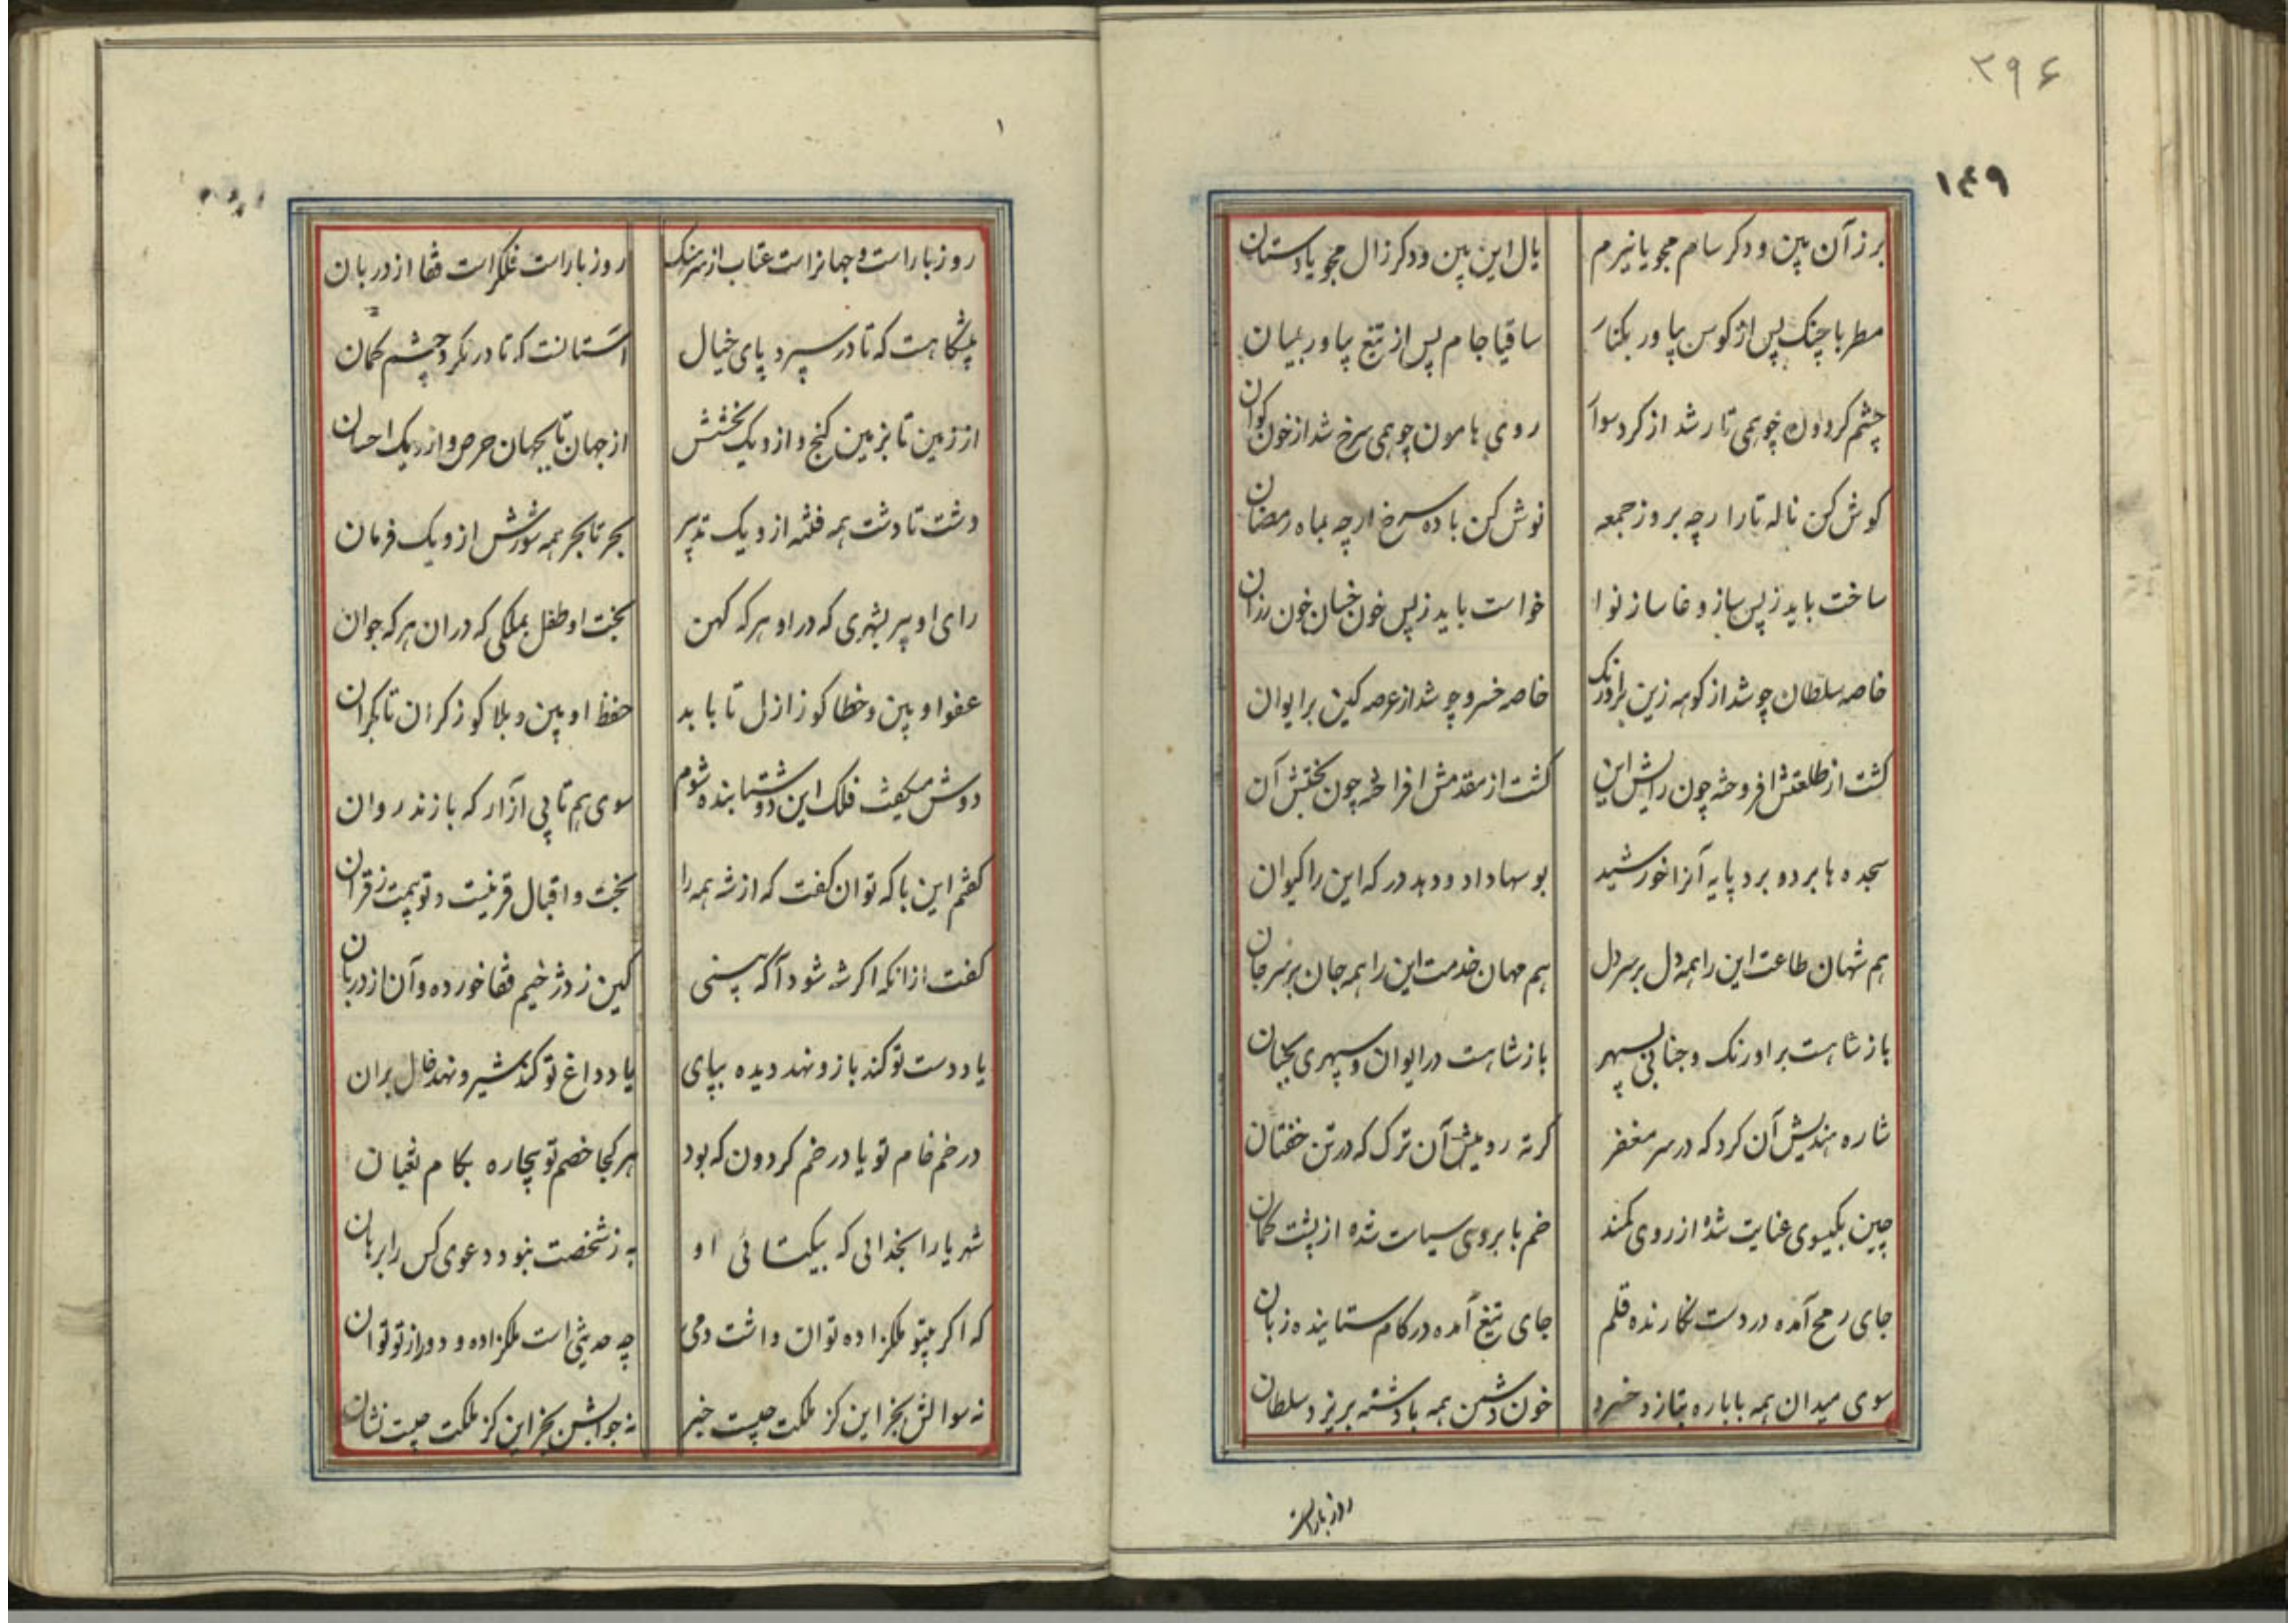 ۳۹۶
۱۴۹
برز آن بین و دکر سام مجو یا نیرم یال این بین و دکر زال مجو یا دستان
مطربا چنک پس از کوس بیاور بکنار ساقیا جام پس از تیغ بیاور بمیان
چشم کردون چو همی تار شد از کرد سوار روی هامون چو همی سرخ شد از خون کوان
کوش کن ناله تار ارچه بروز جمعه نوش کن باده سرخ ارچه بماه رمضان
ساخت باید ز پس ساز وغا ساز نوا خواست باید ز پس خون خسان خون رزان
خاصه سلطان چو شد از کوهه زین بر اورنک خاصه خسرو چو شد از عرصه کین بر ایوان
کشت از طلعتش افروخته چون رایش این کشت از مقدمش افراخته چون بختش آن
سجده ها برد و برد پایه آنرا خورشید بوسها داد و دهد درکه این را کیوان
هم شهان طاعت این را همه دل بر سر دل هم مهان خدمت این را همه جان بر سر جان
باز شاهست بر اورنک و جنابی بسپهر باز شاهست در ایوان و سپهری بجهان
شاره هندیش آن کرد که در سر مغفر کرته رومیش آن ترک که در تن خفتان
چین بکیسوی عنایت شده از روی کمند خم بابروی سیاست شده از پشت کمان
جای رمح آمده در دست نکارنده قلم جای تیغ آمده در کام ستاینده زبان
سوی میدان همه با باره بتازد خسرو خون دشمن همه با دشنه بریزد سلطان
روز باراست
۱
روز باراست و جهانراست عتاب از سرهنک روز باراست فلکراست قفا از دربان
پیشکاهت که تا در سپرد پای خیال آستانت که تا در نکرد چشم کمان
از زمین تا بزمین کنج و ازو یک بخشش از جهان تا بجهان حرص و ازو یک احسان
دشت تا دشت همه فتنه ازو یک تدبیر بحر تا بحر همه شورش ازو یک فرمان
رای او پیر بشهری که در او هر که کهن بخت او طفل بملکی که دران هر که جوان
عفو او بین و خطا کو ز ازل تا بابد حفظ او بین و بلا کو ز کران تا بکران
دوش میکفت فلک این دو شتابنده شوم سوی هم تا پی آزار که بازند روان
کفتم این با که توان کفت که از شه همه را بخت و اقبال قرینست و تو بیمت ز قران
کفت ازانکه اکر شه شود آکه بینی کین ز دژخیم قفا خورده و آن از دربان
یا ددست تو کند باز و نهد دیده بپای یا دداغ تو کند شیر و نهد فال بران
در خم خام تو یا در خم کردون که بود هر کجا خصم تو بیچاره بکام ثعبان
شهریارا بخدائی که بیکتائی او به ز شخصت نبود دعوی کس را برهان
که اکر بیتو ملکزاده توان داشت دمی چه حدیثی است ملکزاده و دور از تو توان
نه سوالش بجز این کز ملکت چیست خبر نه جوابش بجز این کز ملکت چیست نشان